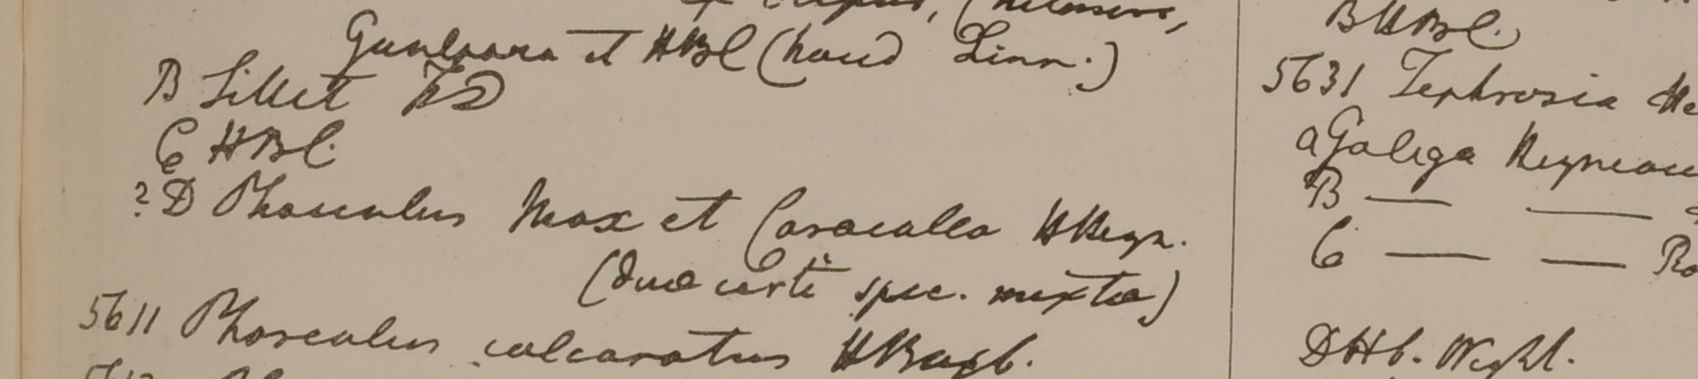 et HBC (haud Linn.)
B Sillet FD
C HBC.
?D Phaseolus Max et Caracalla HHeyn.
(duae certe spec. mixtae)
5611 Phaseolus calcaratus HRoxb.
BHBC.
5631 Tephrosia He
a Galega Heynean
B — —
C — — Ro
D Hb. Wight.